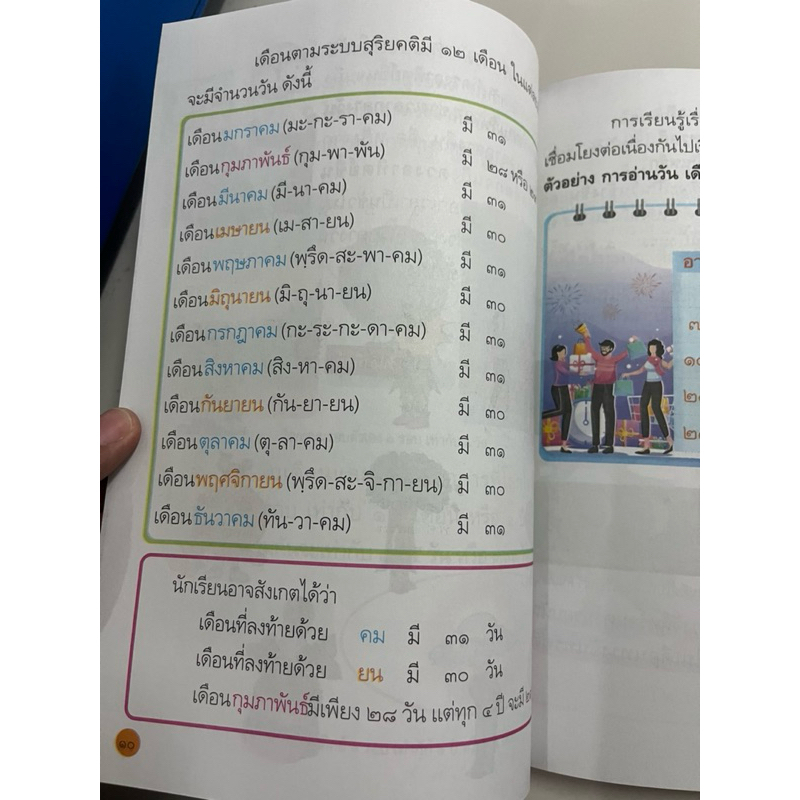 เดือนตามระบบสุริยคติมี ๑๒ เดือน
จะมีจำนวนวัน ดังนี้
เดือนมกราคม (มะ-กะ-รา-คม) มี ๓๑
เดือนกุมภาพันธ์ (กุม-พา-พัน) มี ๒๘ หรือ
เดือนมีนาคม (มี-นา-คม) มี ๓๑
เดือนเมษายน (เม-สา-ยน) มี ๓๐
เดือนพฤษภาคม (พฺรึด-สะ-พา-คม) มี ๓๑
เดือนมิถุนายน (มิ-ถุ-นา-ยน) มี ๓๐
เดือนกรกฎาคม (กะ-ระ-กะ-ดา-คม) มี ๓๑
เดือนสิงหาคม (สิง-หา-คม) มี ๓๑
เดือนกันยายน (กัน-ยา-ยน) มี ๓๐
เดือนตุลาคม (ตุ-ลา-คม) มี ๓๑
เดือนพฤศจิกายน (พฺรึด-สะ-จิ-กา-ยน) มี ๓๐
เดือนธันวาคม (ทัน-วา-คม) มี ๓๑
นักเรียนอาจสังเกตได้ว่า
เดือนที่ลงท้ายด้วย คม มี ๓๑ วัน
เดือนที่ลงท้ายด้วย ยน มี ๓๐ วัน
เดือนกุมภาพันธ์มีเพียง ๒๘ วัน แต่ทุก ๔ ปี จะมี
๑๐
การเรียนรู้
เชื่อมโยงต่อเนื่องกันไป
ตัวอย่าง การอ่านวัน